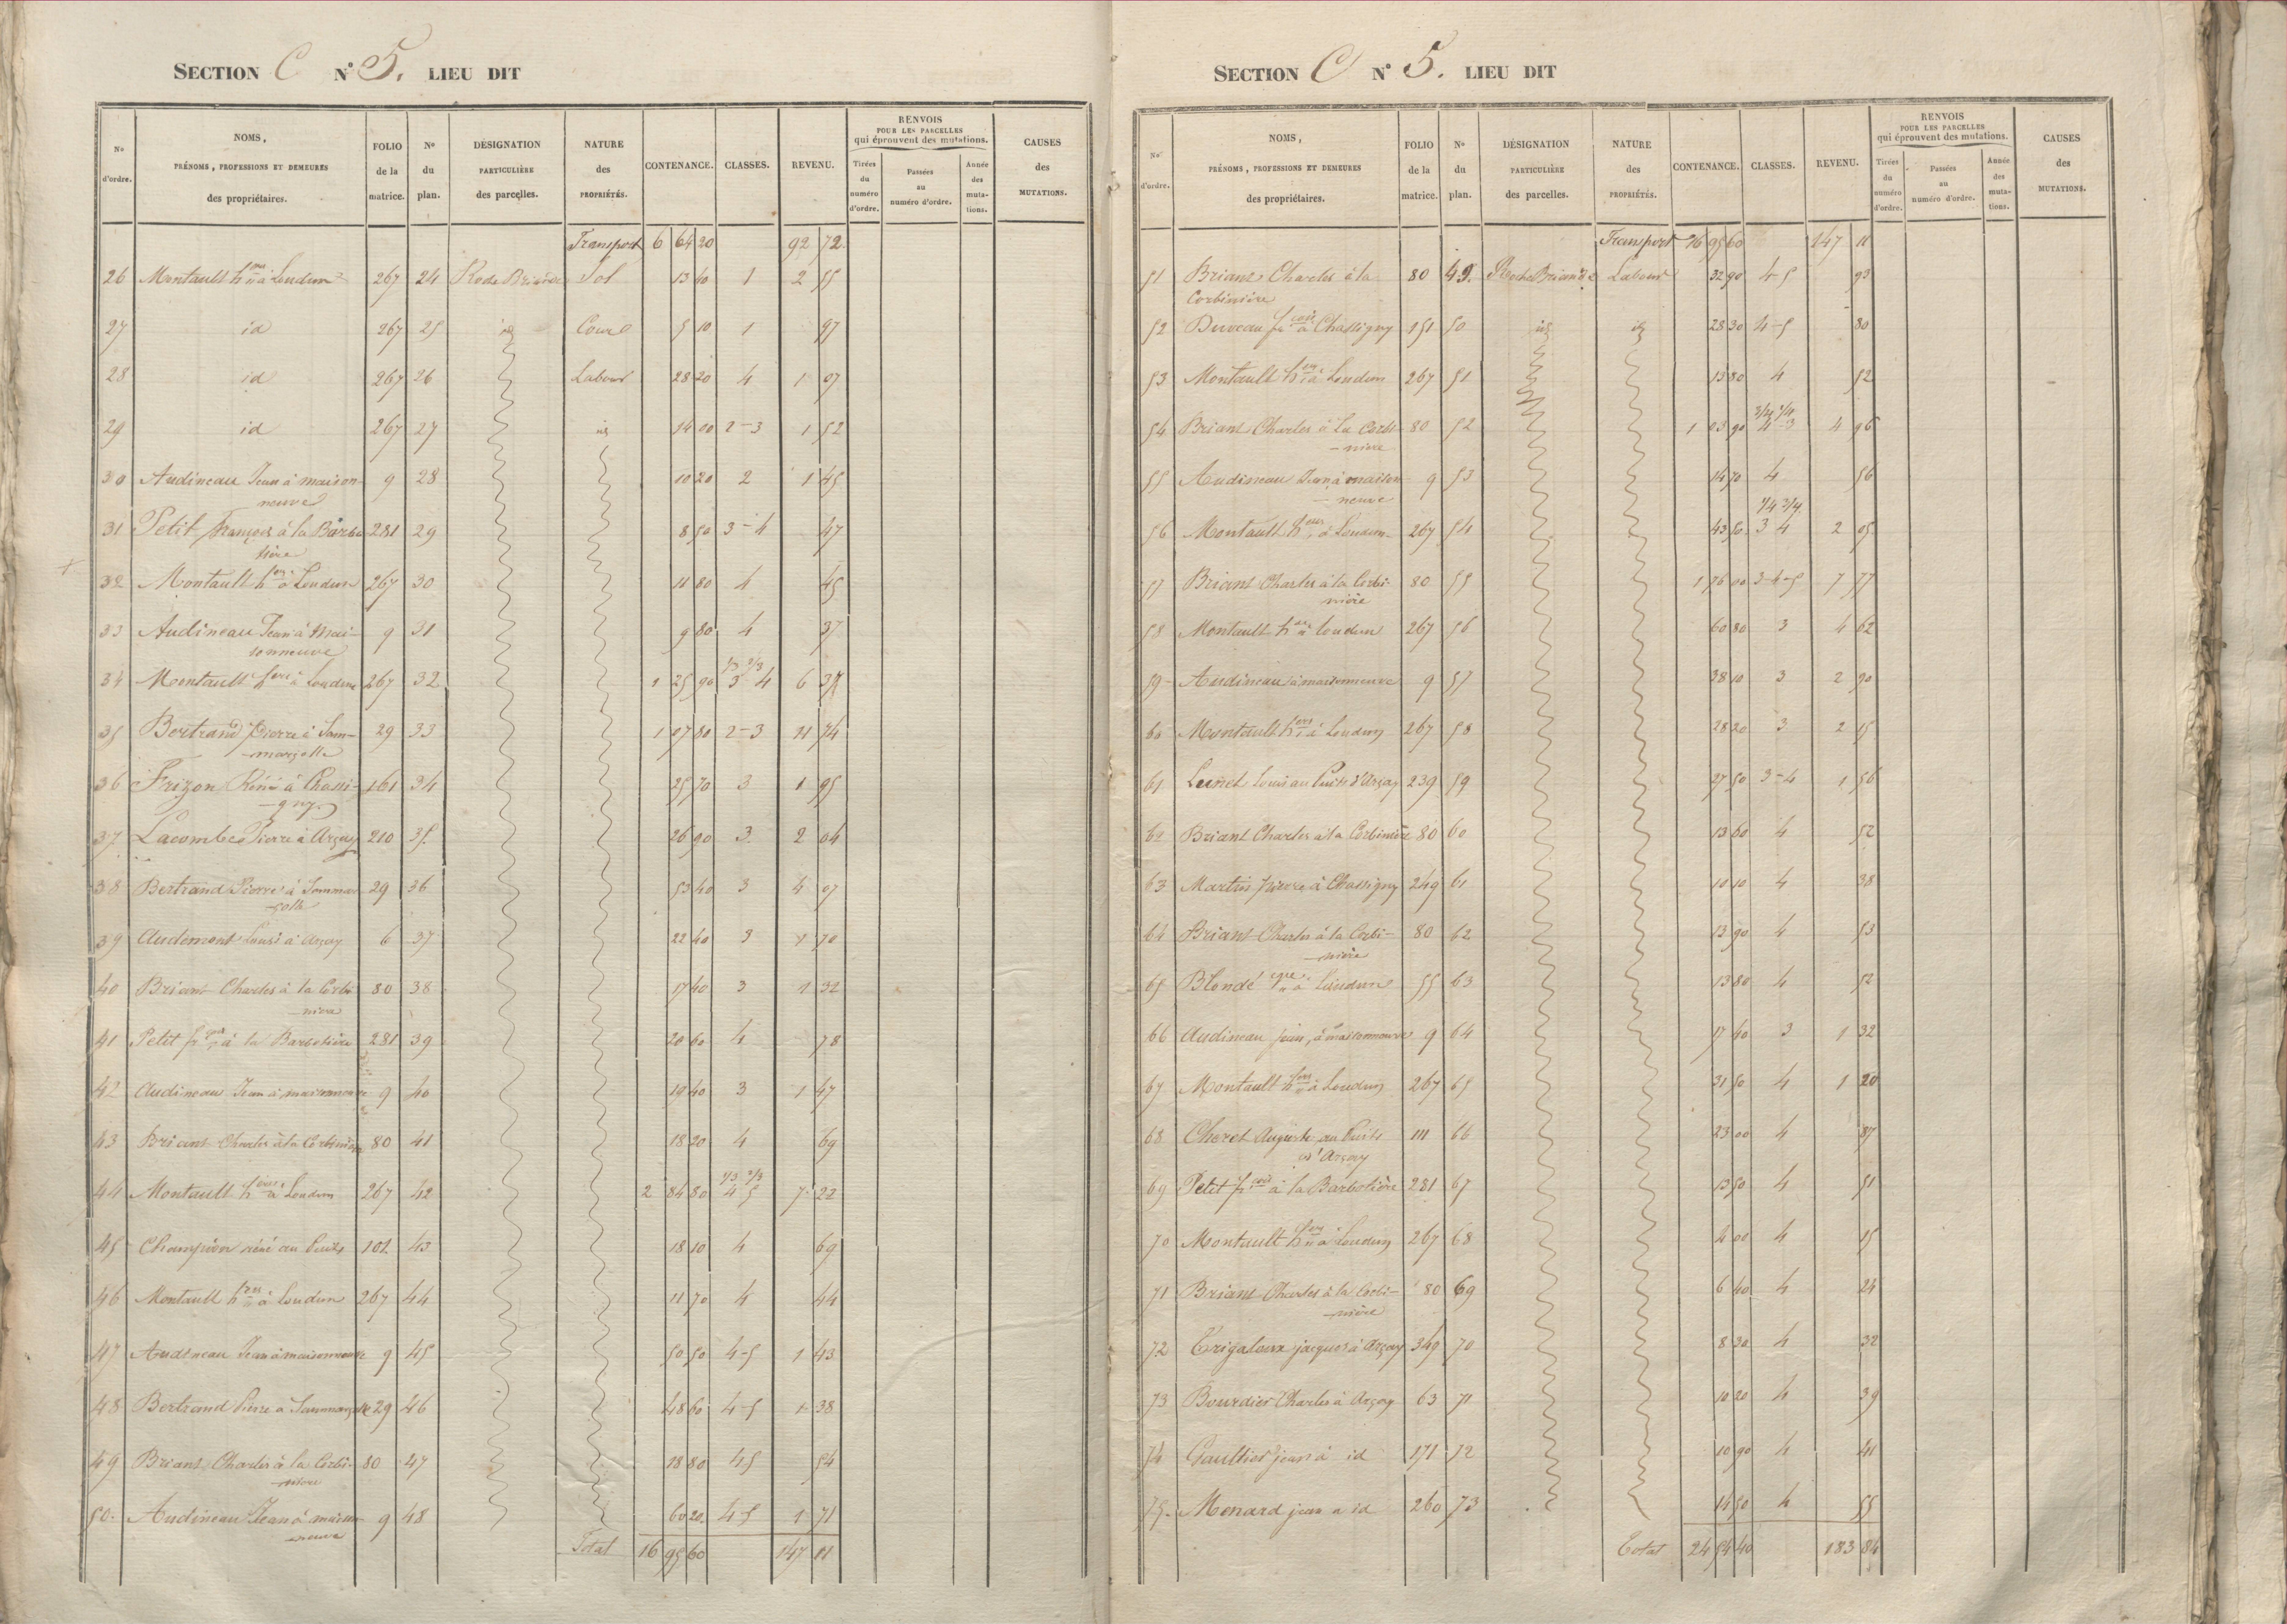 SECTION C N° 5. LIEU DIT
N° d'ordre. NOMS, PRÉNOMS, PROFESSIONS ET DEMEURES des propriétaires. FOLIO de la matrice. N° du plan. DÉSIGNATION PARTICULIÈRE des parcelles. NATURE des PROPRIÉTÉS. CONTENANCE. CLASSES. REVENU. RENVOIS POUR LES PARCELLES qui éprouvent des mutations. Tirées du numéro d'ordre. Passées au numéro d'ordre. Année des mutations. CAUSES des MUTATIONS.
Transport 6 64 20 92 72
26 Montault hers à Loudun 267 24 Roche Briande Sol 13 40 1 2 55
27 id 267 25 id Cour 5 10 1 97
28 id 267 26 Labour 28 20 4 1 07
29 id 267 27 id 14 00 2-3 1 52
30 Audineau Jean à maison- 9 28 10 20 2 1 45
neuve
31 Petit françois à la Barbo- 281 29 8 50 3-4 47
tière
32 Montault hers à Loudun 267 30 11 80 4 45
33 Audineau Jean à Mai- 9 31 9 80 4 37
sonneuve
34 Montault hers à Loudun 267 32 1 25 90 1/3 2/3 3 4 6 37
35 Bertrand pierre à Sam- 29 33 1 07 80 2-3 11 74
marçolle
36 Frizon Réné à Chassi- 161 34 25 70 3 1 95
gny
37 Lacombe Pierre à Arçay 210 35 26 90 3 2 04
38 Bertrand Pierre à Sommar- 29 36 53 40 3 4 07
çolle
39 Audemont Louis à Arçay 6 37 22 40 3 1 70
40 Briant Charles à la Corbi- 80 38 17 40 3 1 32
nière
41 Petit fçois à la Barbotière 281 39 20 60 4 78
42 Audineau Jean à maisonneuve 9 40 19 40 3 1 47
43 Briant Charles à la Corbinière 80 41 18 20 4 69
44 Montault hers à Loudun 267 42 2 84 80 1/3 2/3 4 5 7 22
45 Champion réné au Puits 101 43 18 10 4 69
46 Montault hers à Loudun 267 44 11 70 4 44
47 Audineau Jean à maisonneuve 9 45 50 50 4-5 1 43
48 Bertrand Pierre à Sammarçolle 29 46 48 60 4-5 1 38
49 Briant Charles à la Corbi- 80 47 18 80 4 5 54
nière
50. Audineau Jean à maison- 9 48 60 20 4-5 1 71
neuve
Total 16 95 60 147 11
SECTION C N° 5. LIEU DIT
N° d'ordre. NOMS, PRÉNOMS, PROFESSIONS ET DEMEURES des propriétaires. FOLIO de la matrice. N° du plan. DÉSIGNATION PARTICULIÈRE des parcelles. NATURE des PROPRIÉTÉS. CONTENANCE. CLASSES. REVENU. RENVOIS POUR LES PARCELLES qui éprouvent des mutations. Tirées du numéro d'ordre. Passées au numéro d'ordre. Année des mutations. CAUSES des MUTATIONS.
Transport 16 95 60 147 11
51 Briant Charles à la 80 49. Roche Briande Labour 32 90 4-5 93
Corbinière
52 Duveau fçois à Chassigny 151 50 id id 28 30 4-5 80
53 Montault hers à Loudun 267 51 13 80 4 52
54 Briant Charles à la Corbi- 80 52 1 03 90 3/4 1/4 4-3 4 96
nière
55 Audineau Jean à maison- 9 53 14 70 4 56
neuve
56 Montault hers à Loudun 267 54 43 50 1/4 3/4 3 4 2 05
57 Briant Charles à la Corbi- 80 55 1 76 00 3-4-5 7 77
nière
58 Montault hers à loudun 267 56 60 80 3 4 62
59 Audineau à maisonneuve 9 57 38 10 3 2 90
60 Montault hers à Loudun 267 58 28 20 3 2 15
61 Lunet Louis au Puits d'Arçay 239 59 27 50 3-4 1 56
62 Briant Charles à la Corbinière 80 60 13 60 4 52
63 Martin pierre à Chassigny 249 61 10 10 4 38
64 Briant Charles à la Corbi- 80 62 13 90 4 53
nière
65 Blondé à Loudun 55 63 13 80 4 52
66 Audineau jean, à maisonneuve 9 64 17 40 3 1 32
67 Montault hers à Loudun 267 65 31 50 4 1 20
68 Cheret Auguste au Puits 111 66 23 00 4 87
d'Arçay
69 Petit fçois à la Barbotière 281 67 13 50 4 51
70 Montault hers à Loudun 267 68 4 00 4 15
71 Briant Charles à la Corbi- 80 69 6 40 4 24
nière
72 Trigaleux jacques à Arçay 349 70 8 30 4 32
73 Bourdier Charles à Arçay 63 71 10 20 4 39
74 Gaultier jean à id 171 72 10 90 4 41
75. Menard jean à id 260 73 14 50 4 55
Total 24 54 40 183 84